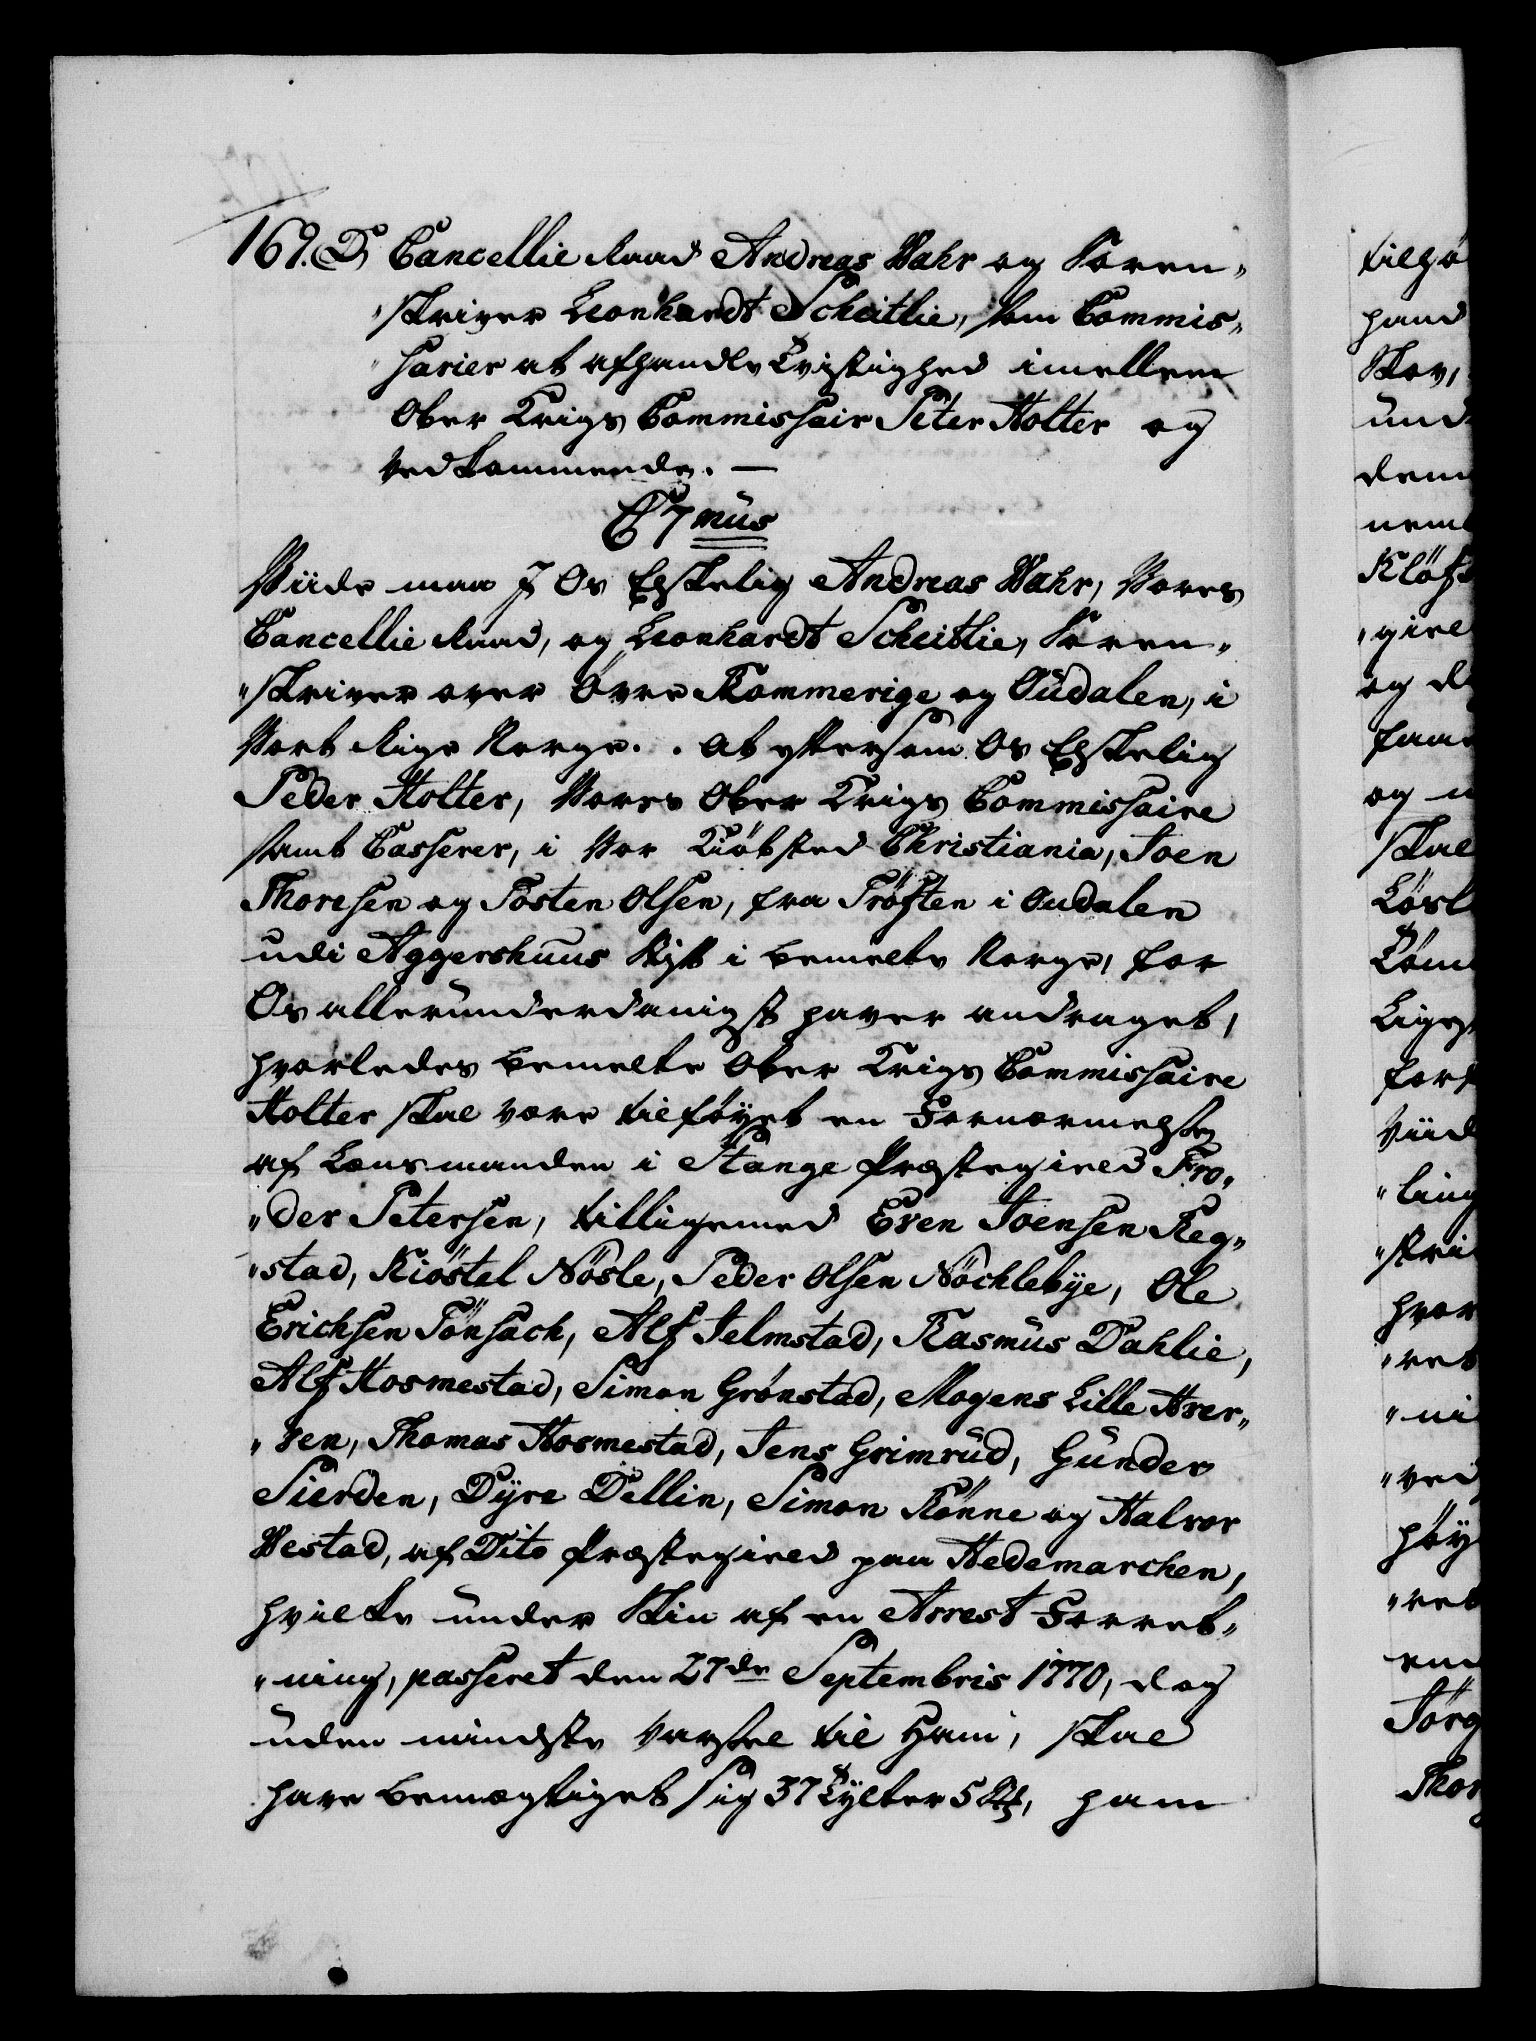 169. D. Cancellie Raad Andreas Wahr og Soren„
„skriver Leonhardt Scheitlie, som Commis„
„sarier at afhandle Tvistighed imellem
Ober Krigs Commissair Peter Holter og
vedkommende. —
C7mus
Viide maa J Os Elskelig Andreas Wahr, Vores
Cancellie Raad, og Leonhardt Scheitlie, Soren„
„skriver over Övre Rommerige og Oudalen, i
Vort Rige Norge. . At eftersom Os Elskelig
Peder Holter, Vores Ober Krigs Commissaire
samt Casserer, i Vor Kiöbsted Christiania, Joen
Thoresen og Tosten Olsen, fra Tröften i Oudalen
udi Aggershuus Stift i bemelte Norge, for
Os allerunderdanigst haver andraget,
hvorledes bemelte Ober Krigs Commissaire
Holter skal være tilföyet en Fornærmelse
af Lensmanden i Stange Præstegield Fro„
„der Petersen, tilligemed Even Joensen Reg„
„stad, Kiöstel Nösle, Peder Olsen Nöchlebye, Ole
Erichsen Tönsach, Alf Jelmstad, Rasmus Dahlie,
Alf Hosmestad, Simon Grönstad, Mogens Lille Hver„
„ven, Thomas Hosmestad, Jens Grimrud, Gunder
Sierden, Dyre Dellin, Simon Rönne og Halvor
Westad, af Dito Præstegield paa Hedemarchen,
hvilke under Skin af en Arrest Forret„
„ning, passeret den 27de Septembris 1770, dog
uden mindste Varsel til Ham, skal
have bemægtiget sig 37 Tylter 5 St, ham